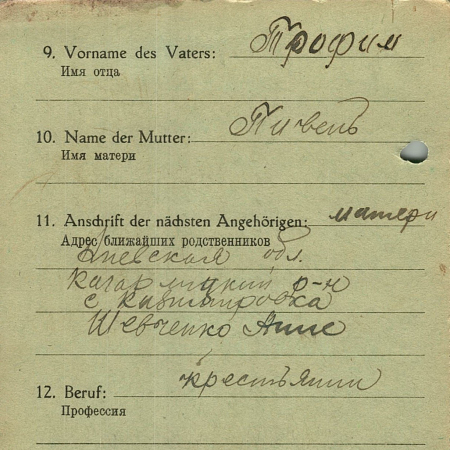 9. Vorname des Vaters: Трофим
Имя отца
10. Name der Mutter: Пивень
Имя матери
11. Anschrift der nächsten Angehörigen: матери
Адрес ближайших родственников
Киевская обл.
Кагарлицкий р-н
с
Шевченко Анне
12. Beruf: крестьянин
Профессия